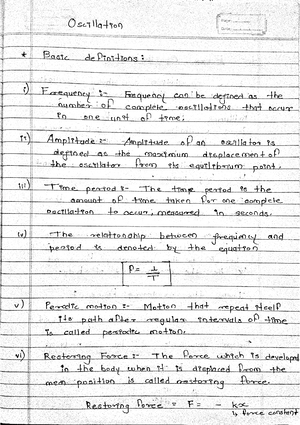 Oscillation
* Basic definitions:
i) Frequency :- Frequency can be defined as the
number of complete oscillations that occur
in one unit of time.
ii) Amplitude :- Amplitude of an oscillator is
defined as the maximum displacement of
the oscillator from its equilibrium point.
iii) Time period :- The time period is the
amount of time taken for one complete
oscillation to occur, measured in seconds.
iv) The relationship between frequency and
period is denoted by the equation
f = 1/T
v) Periodic motion :- Motion that repeat itself
its path after regular intervals of time
is called periodic motion.
vi) Restoring Force :- The force which is developed
in the body when it is displaced from the
mean position is called restoring force.
Restoring force = F = - kx
↳ force constant